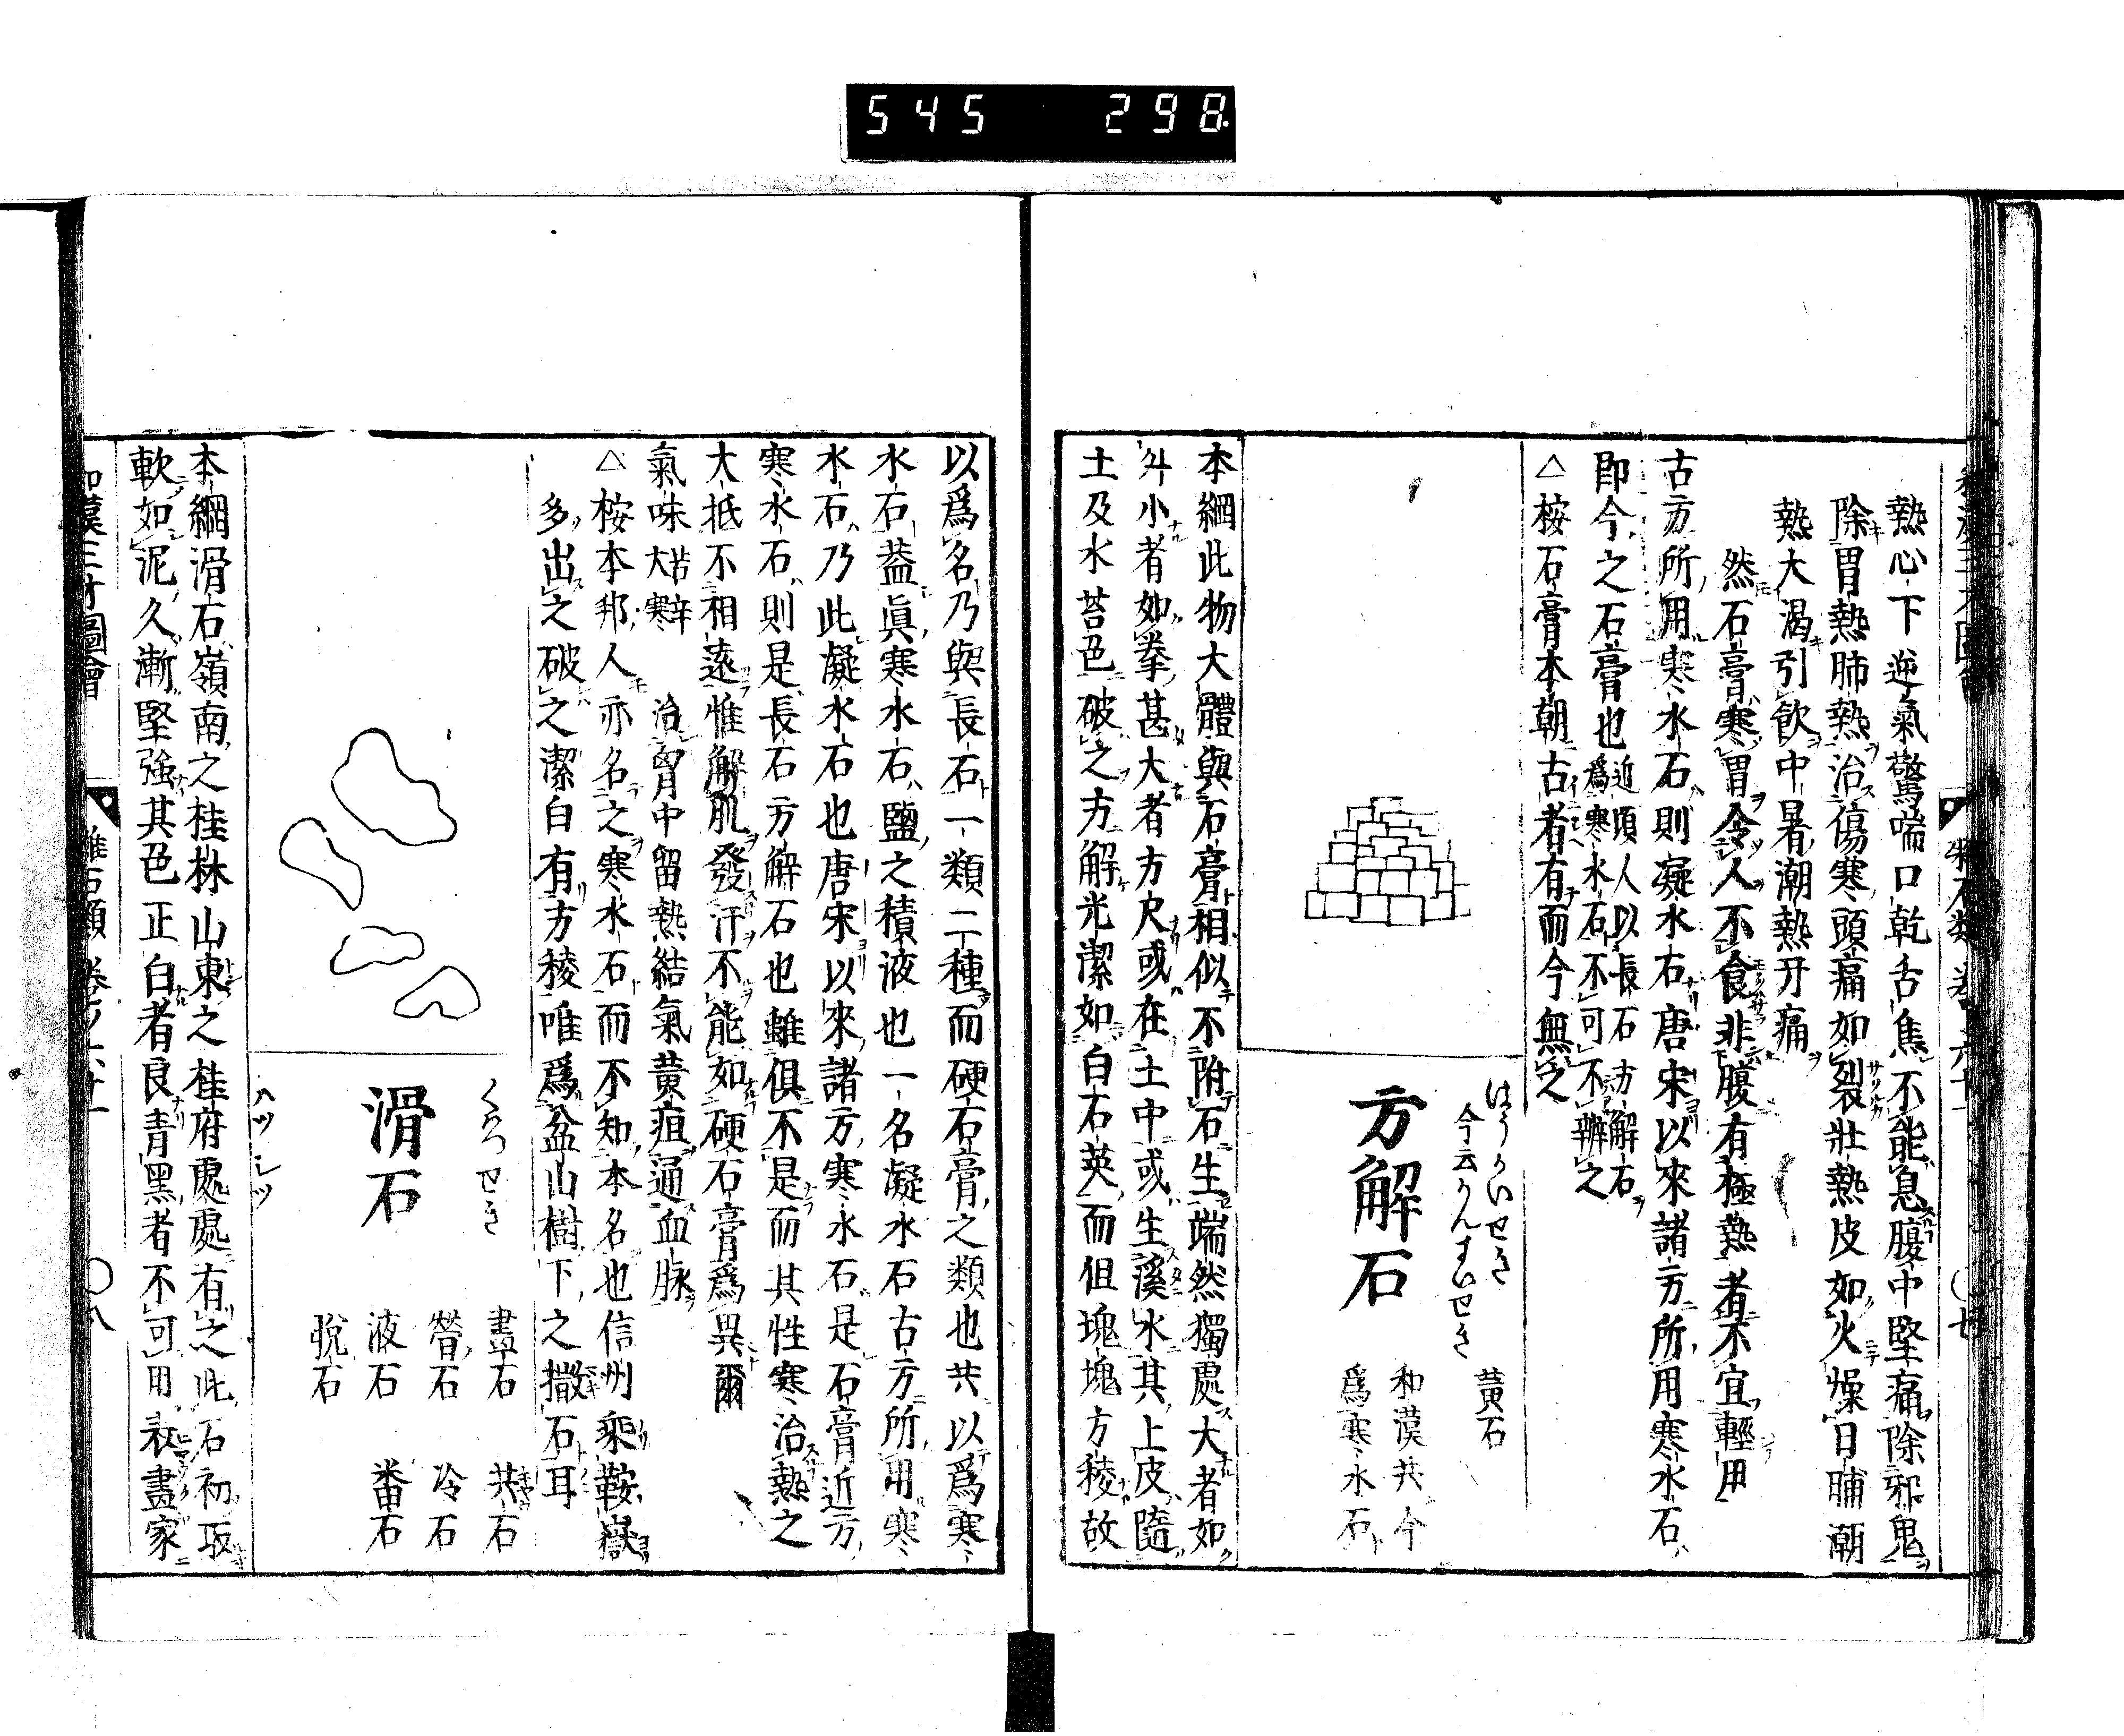 545 298
熱心下逆氣驚喘口乾舌焦不能息腹中堅痛除邪鬼
除胃熱肺熱治傷寒頭痛如裂壯熱皮如火燥日晡潮
熱大渴引飲中暑潮熱牙痛
然石膏寒胃令人不食非腹有極熱者不宜輕用
古方所用寒水石則凝水石唐宋以來諸方所用寒水石
即今之石膏也近頃人以長石方解石
爲寒水石不可不辨之
△桉石膏本朝古者有而今無之
はうかいせき
今云かんすいせき
方解石
黄石
和漢共今
爲寒水石
本綱此物大體與石膏相似不附石生端然獨處大者如
升小者如拳甚大者方尺或在土中或生溪水其上皮隨
土及水苔色破之方解光潔如白石英而但塊塊方稜故
以爲名乃與長石一類二種而硬石膏之類也共以爲寒
水石蓋眞寒水石鹽之積液也一名凝水石古方所用寒
水石乃此凝水石也唐宋以來諸方寒水石是石膏近方
寒水石則是長石方解石也雖俱不是而其性寒治熱之
大抵不相遠惟解肌發汗不能如硬石膏爲異爾
氣味苦辛
大寒 治胷中留熱結氣黄疸通血脉
△桉本邦人亦名之寒水石而不知本名也信州乘鞍嶽
多出之破之潔白有方稜唯爲盆山樹下之撒石耳
くはつせき
滑石
ハツ シツ
畫石 共石
膋石 冷石
液石 番石
脱石
本綱滑石嶺南之桂林山東之桂府處處有之此石初取
軟如泥久漸堅強其色正白者良青黑者不可用表畫家
和漢三才圖會 雜石類 卷ノ六十一 〇八